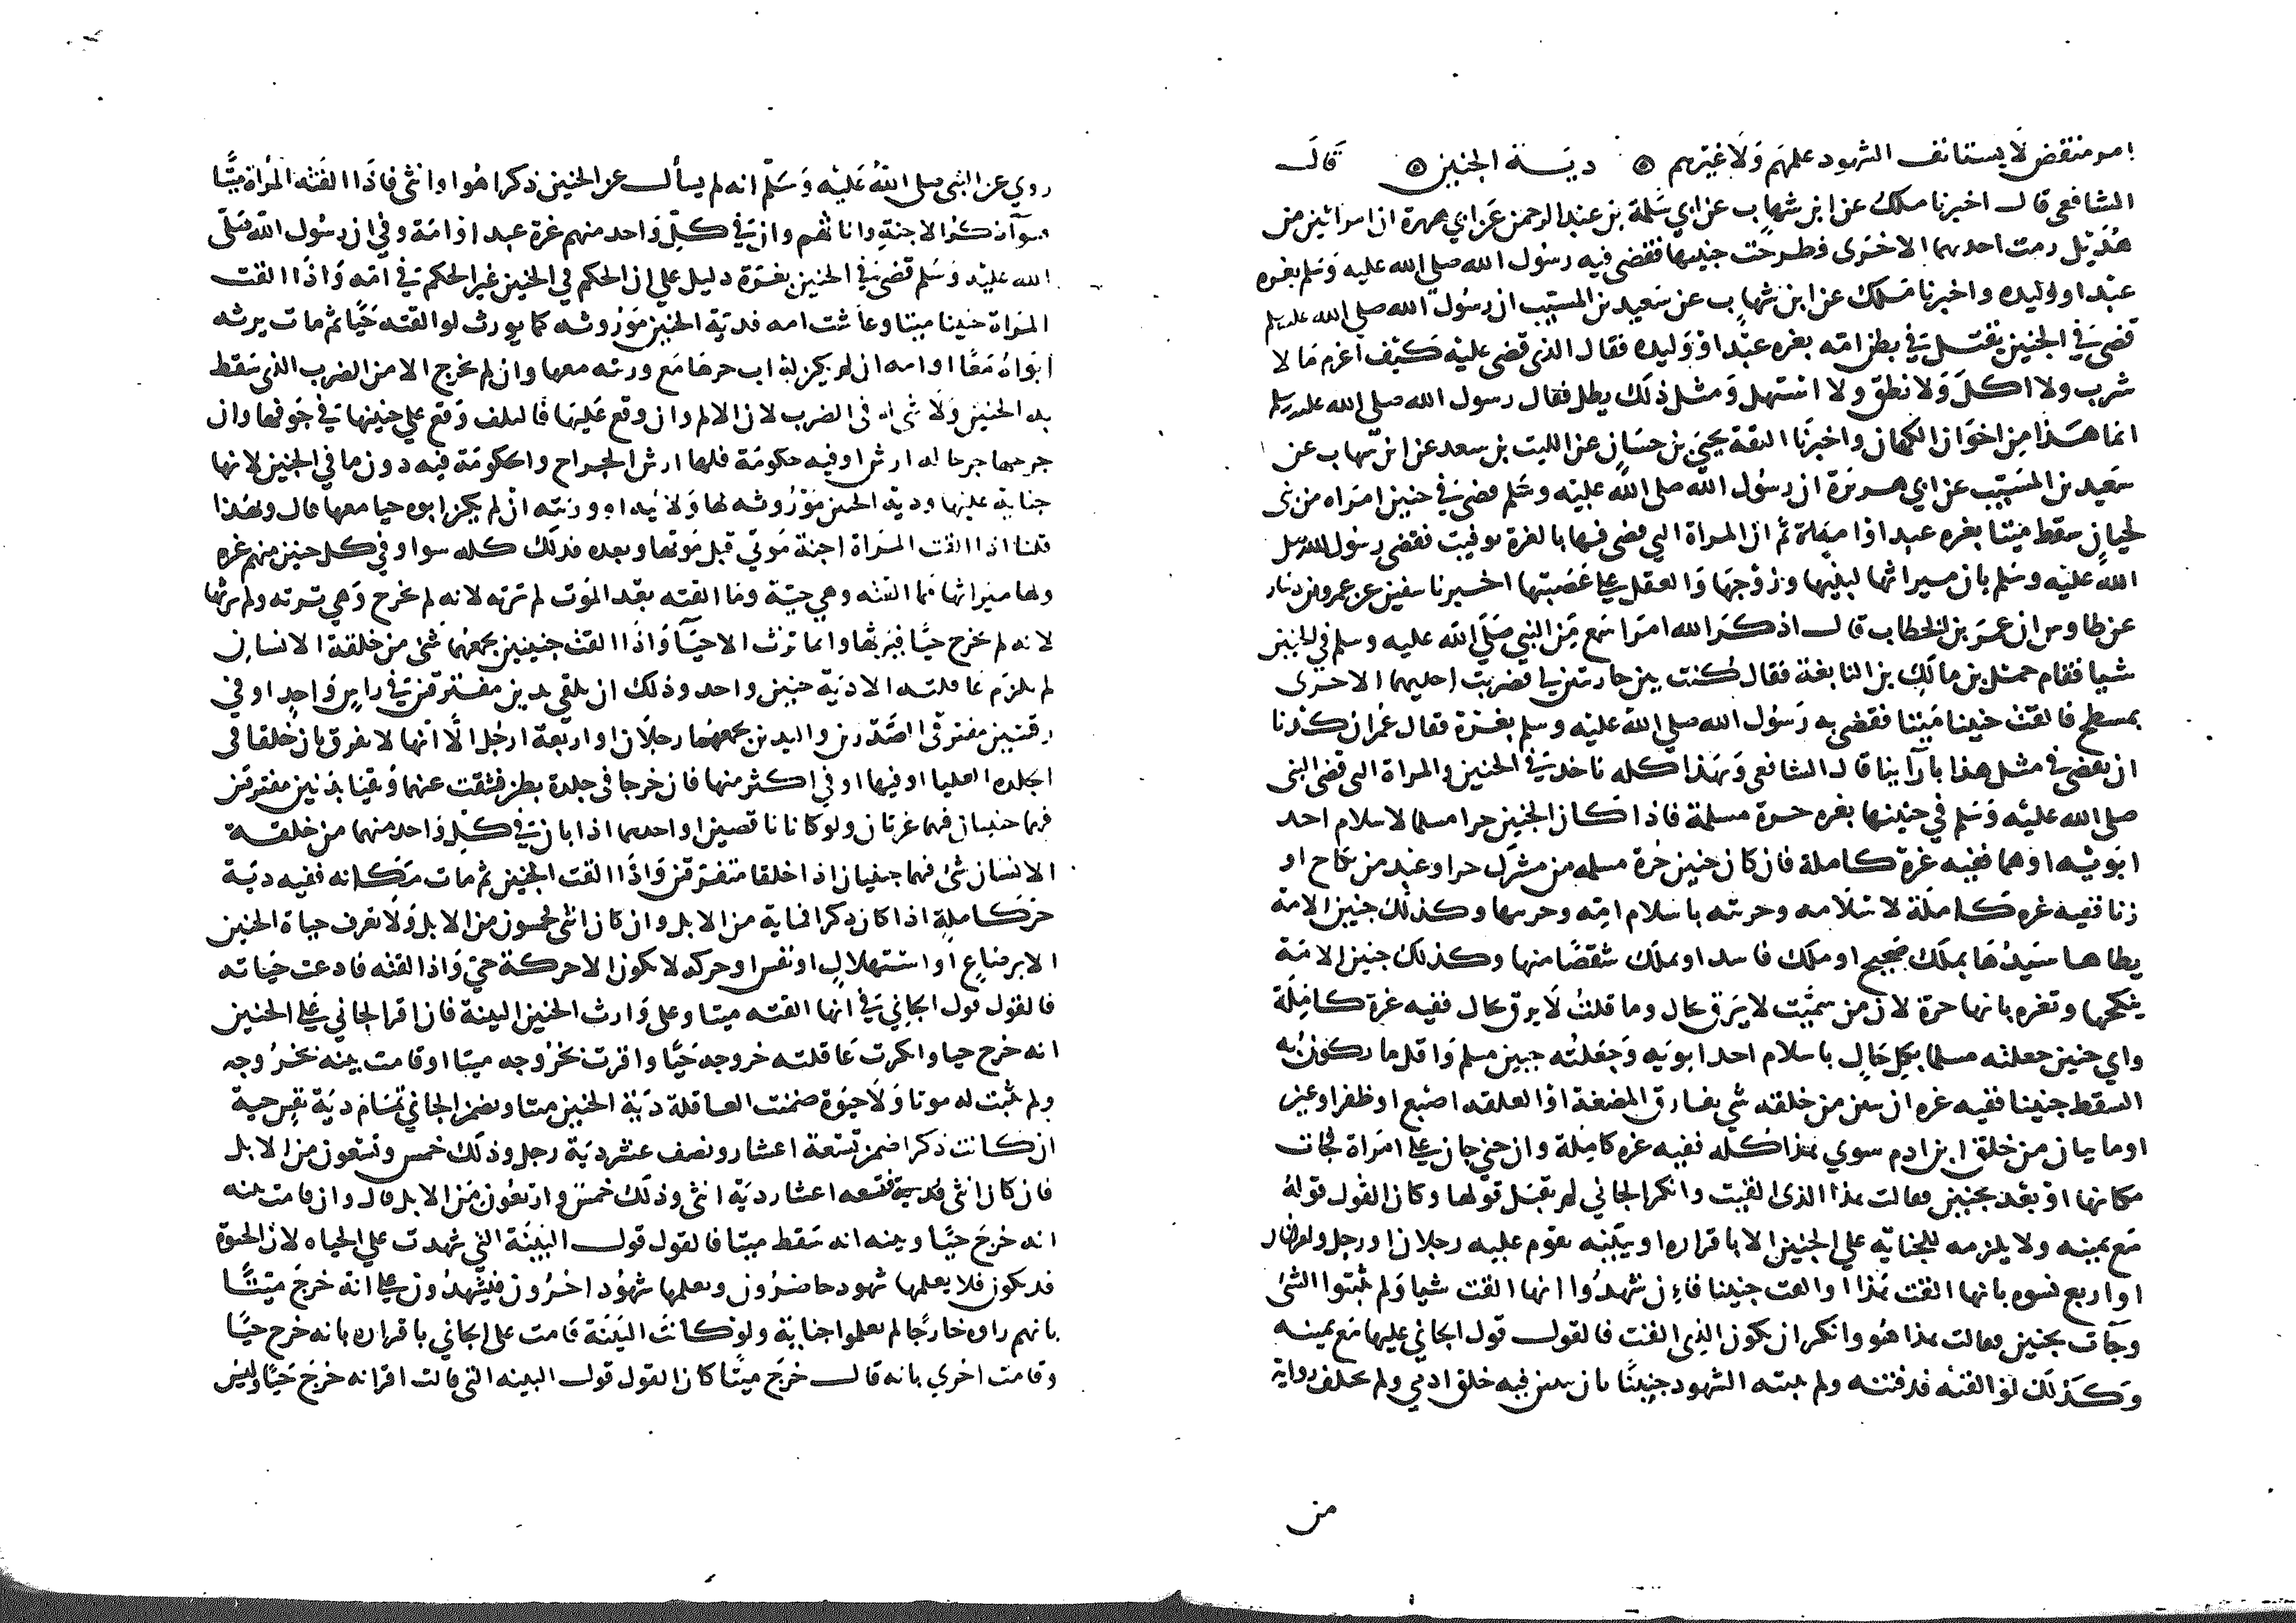 امر منتقض لا يستانف الشهود عليهم ولا غيرهم ۞ دية الجنين ۞ قال
الشافعي قال اخبرنا ملك عن ابن شهاب عن ابي سلمة بن عبد الرحمن عن ابي هريرة ان امراتين من
هذيل رمت احديهما الاخرى فطرحت جنينها فقضى فيه رسول الله صلى الله عليه وسلم بغره
عبد او وليده واخبرنا ملك عن ابن شهاب عن سعيد بن المسيب ان رسول الله صلى الله عليه وسلم
قضى في الجنين يقتل في بطن امه بغره عبد او وليده فقال الذي قضى عليه كيف اغرم ما لا
شرب ولا اكل ولا نطق ولا استهل ومثل ذلك يطل فقال رسول الله صلى الله عليه وسلم
انما هذا من اخوان الكهان واخبرنا الثقة يحيى بن حسان عن الليث بن سعد عن ابن شهاب عن
سعيد بن المسيب عن ابي هريرة ان رسول الله صلى الله عليه وسلم قضى في جنين امراه من بني
لحيان سقط ميتا بغره عبد او امة ثم ان المراة التي قضى فيها بالغرة توفيت فقضى رسول الله صلى
الله عليه وسلم بان ميراثها لبنيها وزوجها والعقل على عصبتها اخبرنا سفين عن عمرو بن دينار
عن طاوس ان عمر بن الخطاب قال اذكر الله امرا سمع من النبي صلى الله عليه وسلم في الجنين
شيا فقام حمل بن مالك بن النابغة فقال كنت بين جارتين لي فضربت احديهما الاخرى
بمسطح فالقت جنينا ميتا فقضى به رسول الله صلى الله عليه وسلم بغرة فقال عمر ان كدنا
ان نقضي في مثل هذا باراينا قال الشافعي وبهذا كله ناخد في الجنين والمراة التي قضى النبي
صلى الله عليه وسلم في جنينها بغره حرة مسلمة فاذا كان الجنين حرا مسلما لاسلام احد
ابويه او هما ففيه غرة كاملة فان كان جنين حرة مسلمه من مشرك حر او عبد من نكاح او
زنا ففيه غره كاملة لاسلامه وحريته باسلام امه وحريتها وكذلك جنين الامة
يطاها سيدها بملك صحيح او ملك فاسد او بملك شقصا منها وكذلك جنين الامة
ينكحها وتغره بانها حرة لان من سميت لا يرق بحال وما قلت لا يرق بحال ففيه غرة كاملة
واي جنين جعلته مسلما بكل حال باسلام احد ابويه وجعلته جنين مسلم واقل ما يكون به
السقط جنينا ففيه غره ان يتبين من خلقه شي يفارق المضغة او العلقه اصبع او ظفر او عين
او ما بان من خلق ابن ادم سوي هذا كله ففيه غره كاملة وان جنى جان على امراة فجات
مكانها او بعد بجنين فقالت هذا الذي القيت وانكر الجاني لم تقبل قولها وكان القول قوله
مع يمينه ولا يلزمه للجناية على الجنين الا باقراره او ببينه تقوم عليه رجلان او رجل وامراتان
او اربع نسوه بانها القت هذا او القت جنينا فان شهدوا انها القت شيا ولم يثبتوا الشئ
وجآت بجنين فقالت هذا هو وانكر ان يكون الذي القت فالقول قول الجاني عليها مع يمينه
وكذلك لو القته فدفنته ولم يثبته الشهود جنينا بان يتبين فيه خلق ادمي ولم تختلف رواية
من
روي عن النبي صلى الله عليه وسلم انه لم يسأل عن الجنين ذكرا هو او انثى فاذا القته المرأة ميتا
فسوآ ذكور الاجنة واناثهم وان في كل واحد منهم غرة عبد او امة وفي ان رسول الله صلى
الله عليه وسلم قضى في الجنين بغرة دليل على ان الحكم في الجنين غير الحكم في امه واذا القت
المراة جنينا ميتا وعاشت امه فدية الجنين موروثه كما يورث لو القته حيا ثم مات يرثه
ابواه معا او امه ان لم يكن له اب حر معا مع ورثه معها وان لم يخرج الا من الضرب الذي سقط
به الجنين ولا شي لها في الضرب لان الالم وان وقع عليها فالتلف وقع على جنينها في جوفها وان
جرحها جرحا له ارش او فيه حكومة فلها ارش الجراح والحكومة فيه دون ما في الجنين لانها
جناية عليها ودية الجنين موروثه لها ولابيه او ورثته ان لم يكن ابوه حيا معها قال ولهذا
قلنا اذا القت المراة اجنة موتي قبل موتها وبعده فذلك كله سوا وفي كل جنين منهم غره
ولها ميراثها مما القته وهي حية وما القته بعد الموت لم ترثه لانه لم يخرج وهي ترثه ولم يرثها
لانه لم يخرج حيا فيرثها وانما ترث الاحيآ واذا القت جنينين يجمعهما شئ من خلقة الانسان
لم يلزم عاقلته الا دية جنين واحد وذلك ان يلقى بدين مفترقين في راس واحد او في
رقبتين مفترقي الصدرين واليدين يجمعهما رجلان او اربعة ارجل الا انها لا تفرق بان خلقا في
الجلده العليا او فيها او في اكثر منها فان خرجا في جلدة بطن فشقت عنهما وبقيا بدنين مفترقين
فهما جنينان فيهما غرتان ولو كانا ناقصين او احدهما اذا بان في كل واحد منهما من خلقة
الانسان شئ فهما جنينان اذا خلقا متفرقين واذا القت الجنين ثم مات مكانه ففيه دية
حر كاملة اذا كان ذكرا فماية من الابل وان كان انثى فخمسون من الابل ولا تعرف حياة الجنين
الا برضاع او استهلال او نفس او حركه لا تكون الا حركة حي واذا القته فادعت حياته
فالقول قول الجاني في انها القته ميتا وعلى وارث الجنين البينة فان اقر الجاني على الجنين
انه خرج حيا وانكرت عاقلته خروجه حيا واقرت بخروجه ميتا او قامت بينه بخروجه
ولم تثبت له موتا ولا حيوة ضمنت العاقلة دية الجنين ميتا وضمن الجاني تمام دية نفس حية
ان كانت ذكرا ضمن تسعة اعشار ونصف عشر دية رجل وذلك خمس وتسعون من الابل
فان كان انثى فدية تسعه اعشار دية انثى وذلك خمس واربعون من الابل قال وان قامت بينه
انه خرج حيا وبينه انه سقط ميتا فالقول قول البينة التي شهدت على الحياه لان الحيوة
قد تكون فلا يعلمها شهود حاضرون ويعلمها شهود اخرون فيشهدون على انه خرج ميتا
بانهم راوه خارجا لم يعلموا جناية ولو كانت البينة قامت على الجاني باقراره بانه خرج حيا
وقامت اخري بانه قال خرج ميتا كان القول قول البينه التي قالت اقر انه خرج حيا وليس